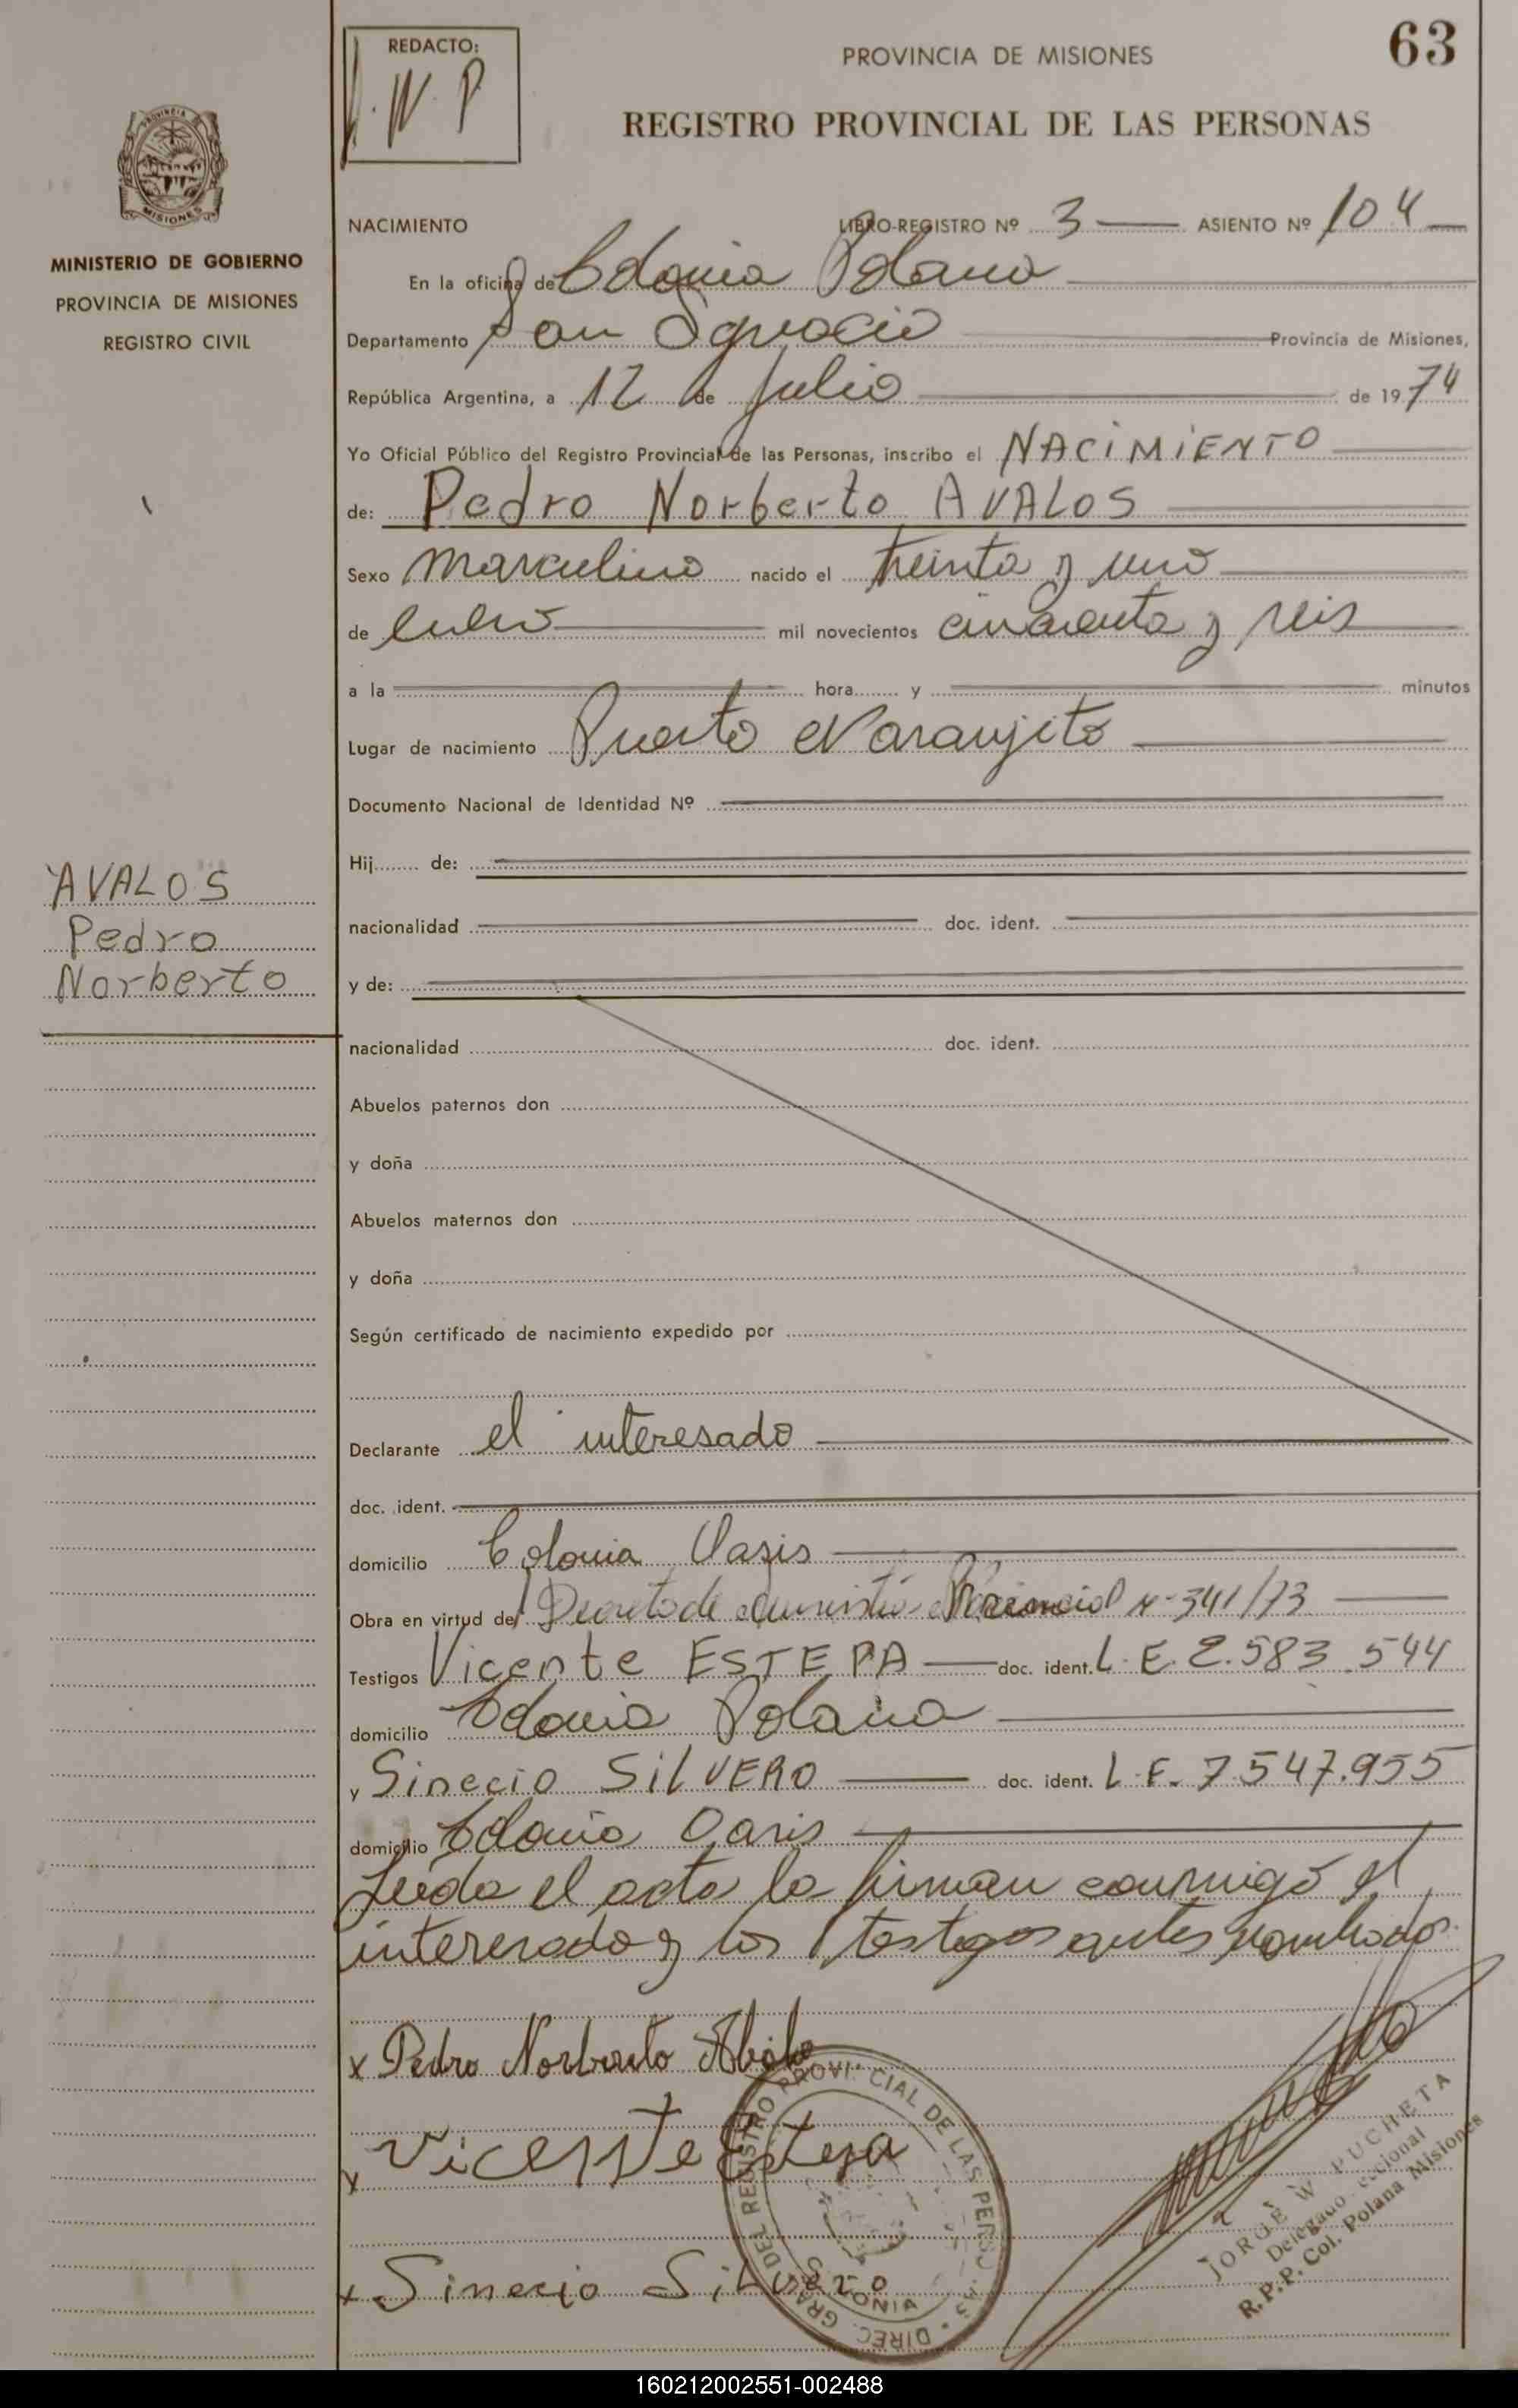 REDACTO:
J. W. P.
PROVINCIA DE MISIONES
63
REGISTRO PROVINCIAL DE LAS PERSONAS
PROVINCIA
MISIONES
MINISTERIO DE GOBIERNO
PROVINCIA DE MISIONES
REGISTRO CIVIL
AVALOS
Pedro
Norberto
NACIMIENTO LIBRO-REGISTRO Nº 3 ASIENTO Nº 104
En la oficina de Colonia Polana
Departamento San Ignacio Provincia de Misiones,
República Argentina, a 12 de Julio de 1974
Yo Oficial Público del Registro Provincial de las Personas, inscribo el NACIMIENTO
de: Pedro Norberto AVALOS
Sexo masculino nacido el treinta y uno
de enero mil novecientos cincuenta y seis
a la hora y minutos
Lugar de nacimiento Puerto Naranjito
Documento Nacional de Identidad Nº
Hij de:
nacionalidad doc. ident.
y de:
nacionalidad doc. ident.
Abuelos paternos don
y doña
Abuelos maternos don
y doña
Según certificado de nacimiento expedido por
Declarante el interesado
doc. ident.
domicilio Colonia Oasis
Obra en virtud del Decreto de Provincial Nº 341/73
Testigos Vicente ESTEPA doc. ident. L.E. 2.583.544
domicilio Colonia Polana
y Sinecio SILVERO doc. ident. L.E. 7.547.955
domicilio Colonia Oasis
Leída el acta la firman conmigo el
interesado y los testigos antes nombrados.
x Pedro Norberto
x Vicente Estepa
x Sinecio Silvero
DIREC. GRAL. DEL REGISTRO PROVINCIAL DE LAS PERSONAS
COLONIA
JORGE W PUCHETA
Delegado Seccional
R.P.P. Col. Polana Misiones
160212002551-002488